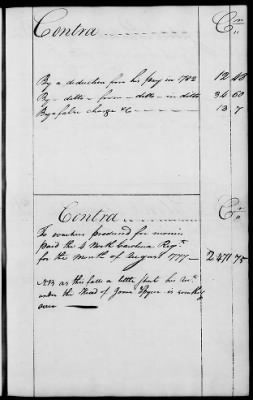 Contra Cr
By a deduction from his pay in 1782 12 48
By - ditto - from - ditto - in ditto 36 60
By a false charge &c 13 7
Contra Cr
To vouchers produced for monies
paid the 4 North Carolina Regt
for the Month of August 1777 - D 471 75
NB as this falls a little short his
under the Head of
over